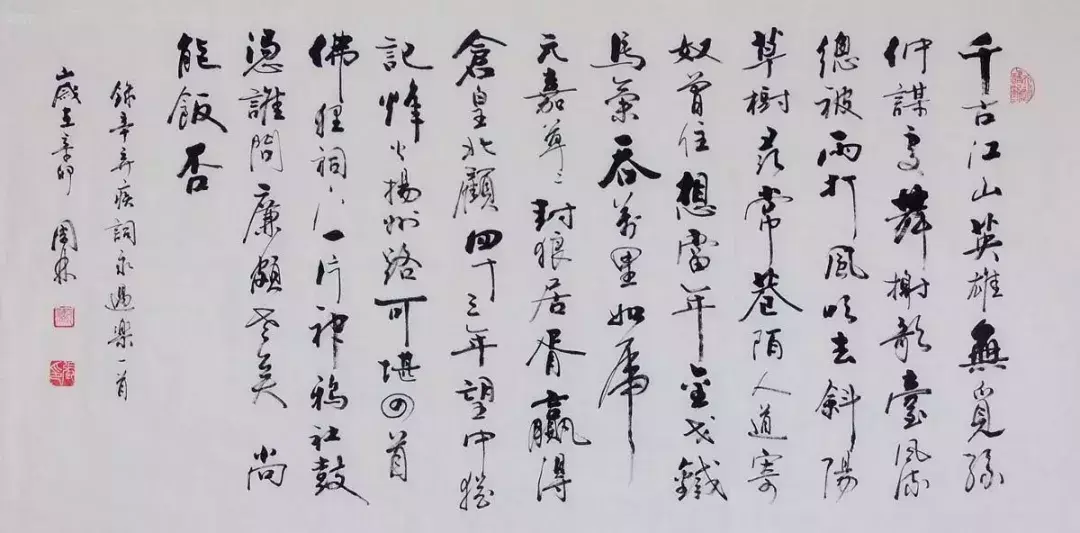 千古江山英雄無覓孫
仲謀處舞榭歌臺風流
總被雨打風吹去斜陽
草樹尋常巷陌人道寄
奴曾住想當年金戈鐵
馬氣吞萬里如虎
元嘉草〻封狼居胥贏得
倉皇北顧四十三年望中猶
記烽火揚州路可堪回首
佛狸祠下一片神鴉社鼓
憑誰問廉頗老矣尚
能飯否
錄辛弃疾詞永遇樂一首
歲在辛卯 周林